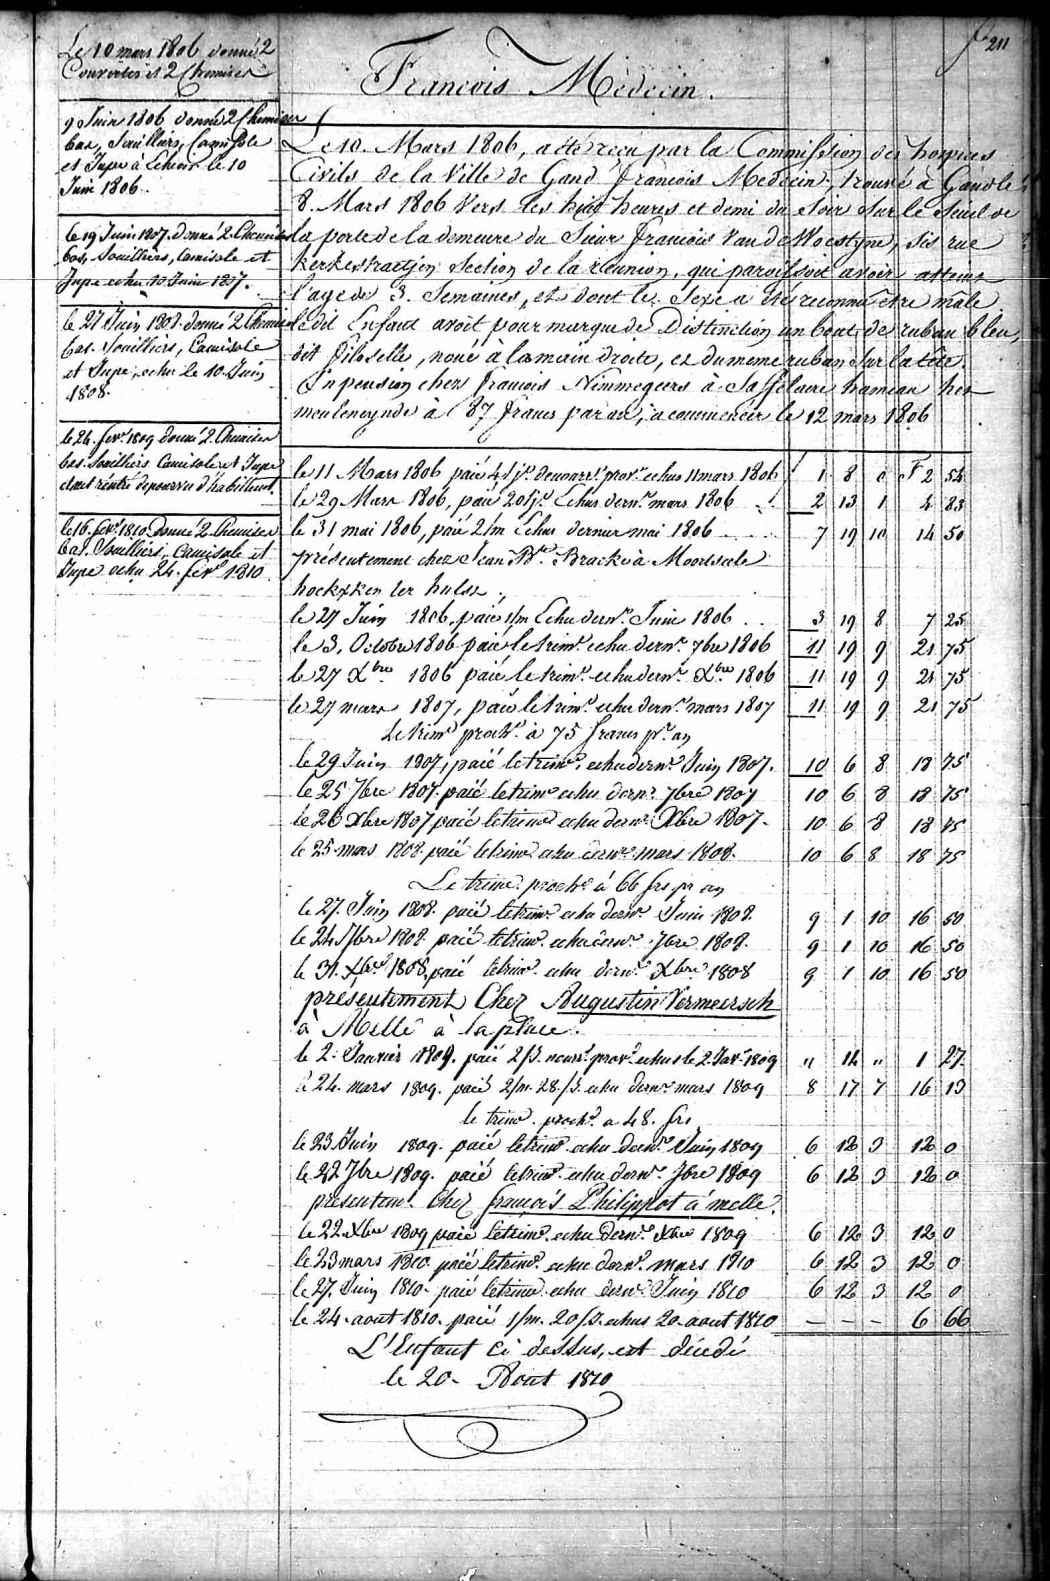 211
Le 10 mars 1806 donné 2
Couvertes et 2 Chemises
9 Juin 1806 donné 2 Chemises
bas, Souilliers, Camisole
et Jupe à Echoir le 10
Juin 1806.
le 19 Juin 1807. donné 2 Chemises
bas, Souilliers, Camisole et
Jupe echu 10 Juin 1807.
le 27 Juin 1808. donné 2 Chemises
bas. Souilliers, Camisole
et Jupe, echu le 10 Juin
1808.
le 24. fevr. 1809 donné 2. Chemises
bas. Souilliers Camisole et Jupe
etant rentré depourvu d'habillemt.
le 16. fevr. 1810 donné 2. Chemises
bas. Souilliers, Camisole et
Jupe echu 24. fevr. 1810
Francois Medecin.
Le 10. Mars 1806, a été reçu par la Commission des hospices
Civils de la Ville de Gand François Medecin, trouvé à Gand le
8. Mars 1806 Vers les huit heures et demi du Soir Sur le Seuil de
la porte de la demeure du Sieur François Van de Woestyne, sis rue
Section de la réunion, qui paroissoit avoir atteint
l'age de 3. Semaines, et dont le Sexe a été reconnu être male
ledit Enfant avoit pour marque de Distinction un bout de ruban bleu,
dit filoselle, noué à la main droite, et du meme ruban Sur la tête.
En pension chez François Nimmegeers à Saffelaere hameau het
moulenoynde à 87 francs par an, a commencer le 12 mars 1806
le 11 Mars 1806 paié 4 Js. de nourr. provre. echus 11 mars 1806 1 8 0 F 2 54
le 29 Mars 1806, paié 20 Js. Echus dernr. mars 1806 2 13 1 4 83
le 31 mai 1806, paié 2/m Echus dernier mai 1806 7 19 10 14 50
présentement chez Jean Bte. Bracke à Moortseele
hoekxken ter hulst,
le 27 Juin 1806, paié 1/m Echu dernr. Juin 1806 3 19 8 7 25
le 3. Octobre 1806 paié le trimr. echu dernr. 7bre 1806 11 19 9 21 75
le 27 Xbre 1806 paié le trimr. echu dernr. Xbre 1806 11 19 9 21 75
le 27 mars 1807, paié le trimr. echu dernr. mars 1807 11 19 9 21 75
Le trimr. prochn. à 75 francs pr. an
le 29 Juin 1807, paié le trimr. echu dernr. Juin 1807. 10 6 8 18 75
le 25 7bre 1807. paié le trimr. echu dernr. 7bre 1807 10 6 8 18 75
le 26 Xbre 1807 paié le trimr. echu dernr. Xbre 1807. 10 6 8 18 75
le 25 mars 1808. paié le trimr. echu dernr. mars 1808. 10 6 8 18 75
Le trimr. prochn. à 66 frs pr an
le 27. Juin 1808. paié le trimr. echu dernr. Juin 1808. 9 1 10 16 50
le 24 7bre 1808. paié le trimr. echu dernr. 7bre 1808. 9 1 10 16 50
le 31. Xbre 1808, paié le trimr. echu dernr. Xbre 1808 9 1 10 16 50
presentement Chez Augustin Vermeersch
à Melle à la place.
le 2. Janvier 1809. paié 2/J. nourr. provre. echus le 2. Janr. 1809 " 14 " 1 27
le 24. mars 1809. paié 2/m. 28/J. echu dernr. mars 1809 8 17 7 16 13
le trimr. prochn. a 48. frs,
le 23 Juin 1809. paié le trimr. echu dernr. Juin 1809 6 12 3 12 0
le 22 7bre 1809. paié le trimr. echu dernr. 7bre 1809 6 12 3 12 0
presentemt. Chez françois Philippot à melle.
le 22 Xbre 1809 paié le trimr. echu dernr. Xbre 1809 6 12 3 12 0
le 23 mars 1810 paié le trimr. echu dernr. mars 1810 6 12 3 12 0
le 27. Juin 1810. paié le trimr. echu dernr. Juin 1810 6 12 3 12 0
le 24. aout 1810. paié 1/m. 20/J. echus 20. aout 1810 — — — 6 66
L'Enfant ci dessus, est décédé
le 20. Aout 1810